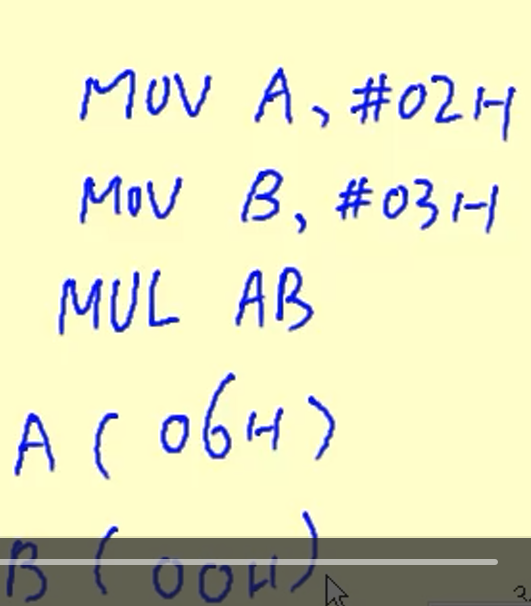 MOV A, #02H
MOV B, #03H
MUL AB
A ( 06H )
B ( 00H )